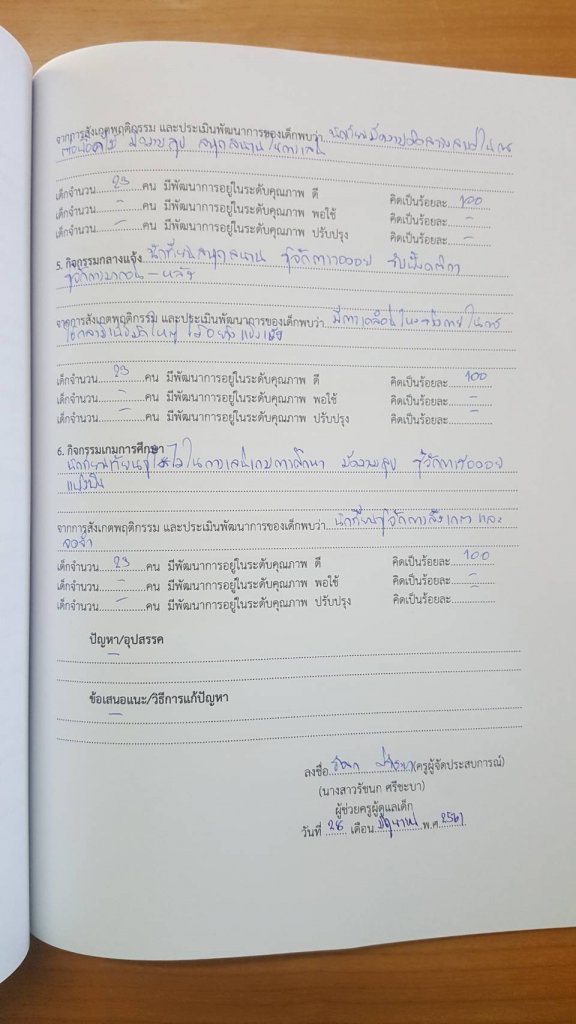 จากการสังเกตพฤติกรรม และประเมินพัฒนาการของเด็กพบว่า นักเรียนมีความคิดสร้างสรรค์ในการ
ต่อบล็อคไม้ มีความสุข สนุกสนาน ในการเล่น
เด็กจำนวน 23 คน มีพัฒนาการอยู่ในระดับคุณภาพ ดี คิดเป็นร้อยละ 100
เด็กจำนวน - คน มีพัฒนาการอยู่ในระดับคุณภาพ พอใช้ คิดเป็นร้อยละ -
เด็กจำนวน - คน มีพัฒนาการอยู่ในระดับคุณภาพ ปรับปรุง คิดเป็นร้อยละ -
5. กิจกรรมกลางแจ้ง นักเรียนสนุกสนาน รู้จักการรอคอย รับฟังกติกา
รู้จักการมาก่อน – หลัง
จากการสังเกตพฤติกรรม และประเมินพัฒนาการของเด็กพบว่า มีการเคลื่อนไหวร่างกาย ในการ
ใช้กล้ามเนื้อมัดใหญ่ ได้อย่างแข็งแรง
เด็กจำนวน 23 คน มีพัฒนาการอยู่ในระดับคุณภาพ ดี คิดเป็นร้อยละ 100
เด็กจำนวน - คน มีพัฒนาการอยู่ในระดับคุณภาพ พอใช้ คิดเป็นร้อยละ -
เด็กจำนวน - คน มีพัฒนาการอยู่ในระดับคุณภาพ ปรับปรุง คิดเป็นร้อยละ -
6. กิจกรรมเกมการศึกษา
นักเรียนเรียนรู้ ในการเล่นเกมการศึกษา มีความสุข รู้จักการรอคอย
แบ่งปัน
จากการสังเกตพฤติกรรม และประเมินพัฒนาการของเด็กพบว่า นักเรียนรู้จักการสังเกต และ
จดจำ
เด็กจำนวน 23 คน มีพัฒนาการอยู่ในระดับคุณภาพ ดี คิดเป็นร้อยละ 100
เด็กจำนวน - คน มีพัฒนาการอยู่ในระดับคุณภาพ พอใช้ คิดเป็นร้อยละ -
เด็กจำนวน - คน มีพัฒนาการอยู่ในระดับคุณภาพ ปรับปรุง คิดเป็นร้อยละ
ปัญหา/อุปสรรค
-
ข้อเสนอแนะ/วิธีการแก้ปัญหา
-
ลงชื่อ รัชนก ศรีชะบา (ครูผู้จัดประสบการณ์)
(นางสาวรัชนก ศรีชะบา)
ผู้ช่วยครูผู้ดูแลเด็ก
วันที่ 28 เดือน มิถุนายน พ.ศ. 2561